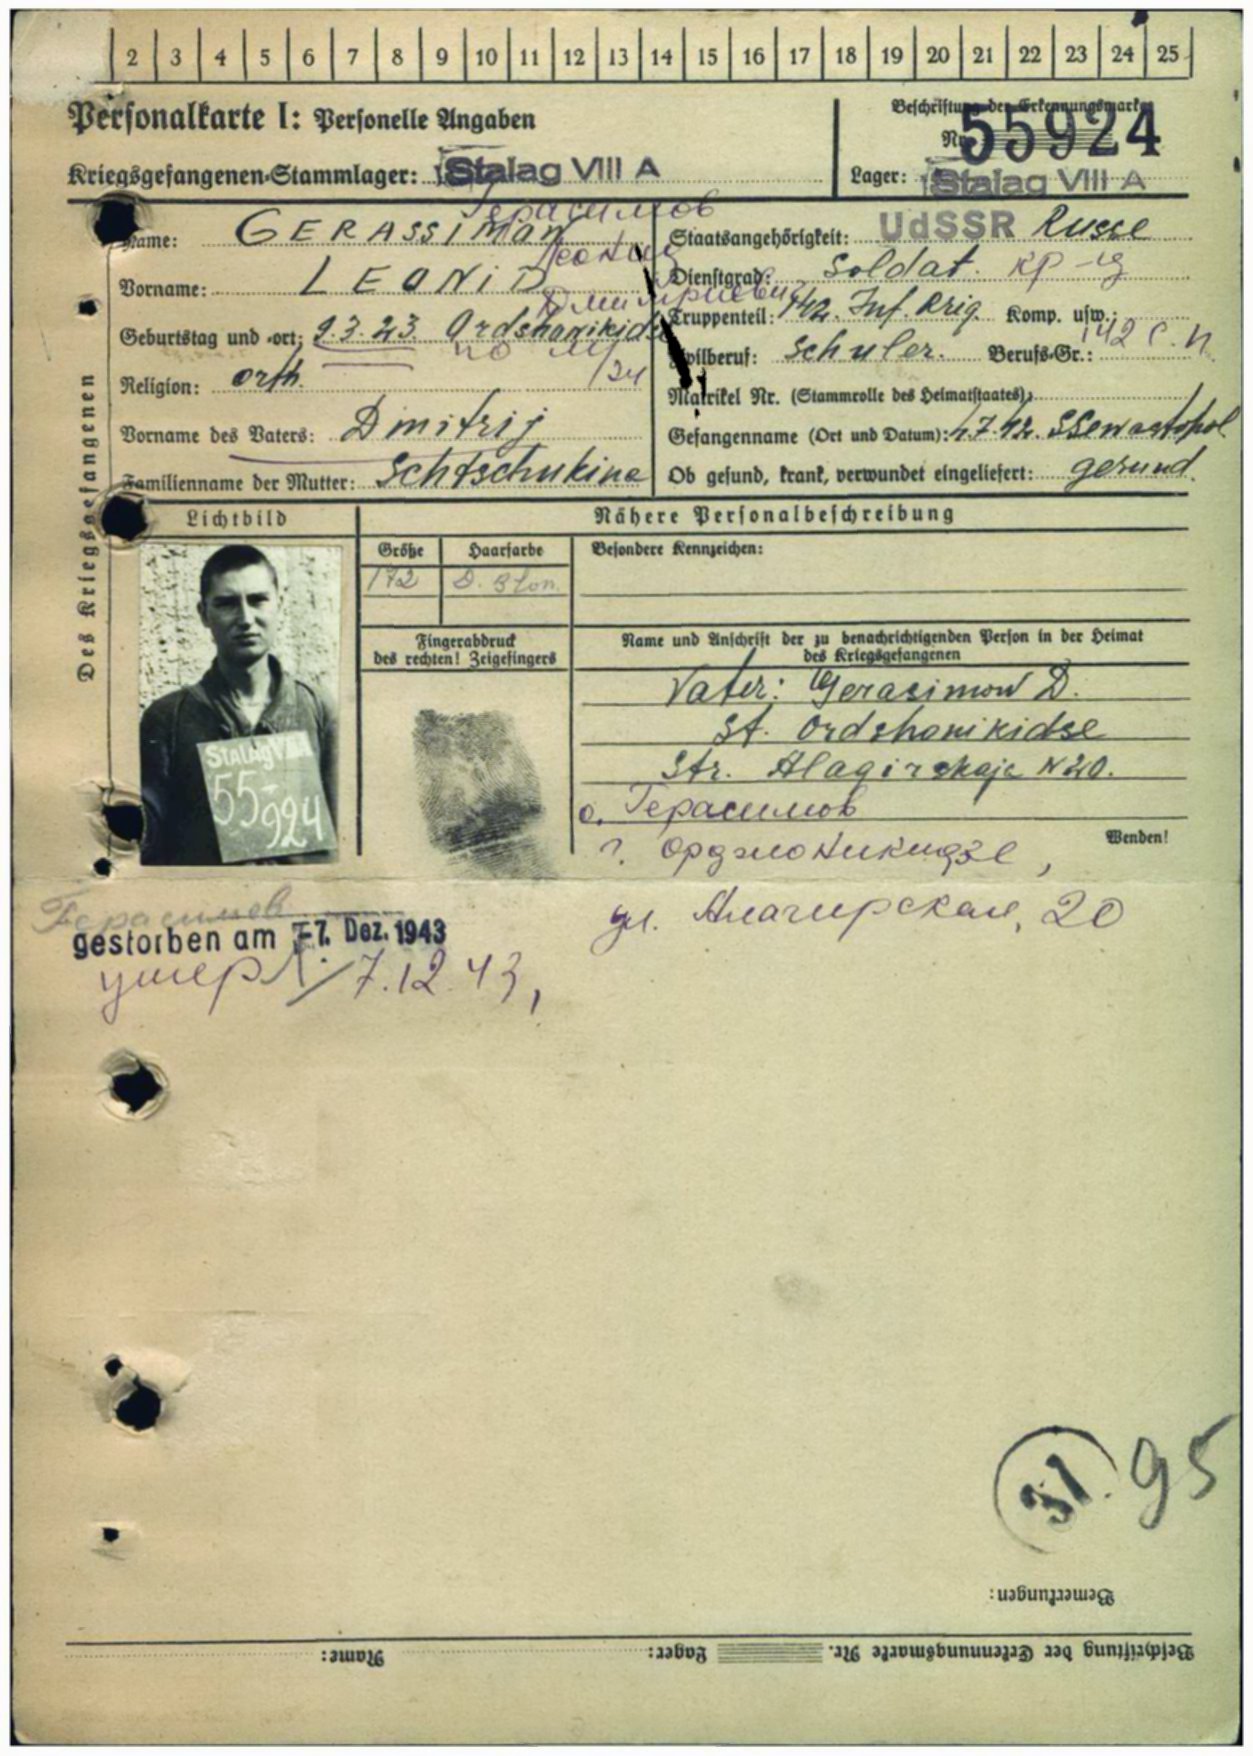 2 3 4 5 6 7 8 9 10 11 12 13 14 15 16 17 18 19 20 21 22 23 24 25
Personalkarte I: Personelle Angaben
Kriegsgefangenen-Stammlager: Stalag VIII A
Beschriftung der Erkennungsmarke
Nr. 55924
Lager: Stalag VIII A
Des Kriegsgefangenen
Герасимов
Name: GERASSIMON
Леонид
Vorname: LEONID
Дмитриевич
Geburtstag und -ort: 9.3.23. Ordshonikidse
Religion: orth.
Vorname des Vaters: Dmitrij
Familienname der Mutter: Schtschukina
Staatsangehörigkeit: UdSSR Russe
Dienstgrad: Soldat. кр-ц
Truppenteil: 142. Inf. Brig. Komp. usw.:
142 с.п.
Zivilberuf: Schuler. Berufs-Gr.:
Matrikel Nr. (Stammrolle des Heimatstaates):
Gefangenname (Ort und Datum): 4.7.42. SSewastopol
Ob gesund, krank, verwundet eingeliefert: gesund.
Lichtbild
Nähere Personalbeschreibung
Größe Haarfarbe Besondere Kennzeichen:
172 D. Blon.
Stalag VIII A
55924
Fingerabdruck
des rechten! Zeigefingers
Name und Anschrift der zu benachrichtigenden Person in der Heimat
des Kriegsgefangenen
Vater: Gerasimow D.
St. Ordshonikidse
Str. Alagirskaja N 20.
о. Герасимов
г. Орджоникидзе,
Wenden!
ул. Алагирская, 20
Герасимов
gestorben am -7. Dez. 1943
умер 7.12.43,
31. 95
Bemerkungen:
Beschriftung der Erkennungsmarke Nr. Lager: Name: